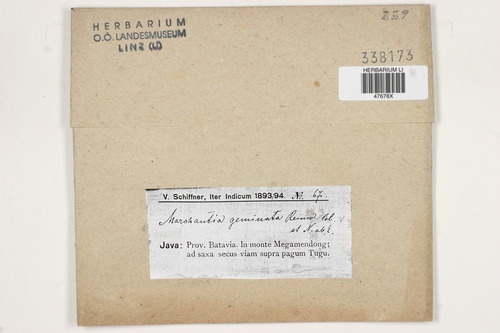 HERBARIUM
O.Ö. LANDESMUSEUM
LINZ (LI)
259
338173
HERBARIUM LI
47678X
V. Schiffner, Iter Indicum 1893/94. N. 67.
Marchantia geminata Reinw. Bl.
et N. ab E.
Java: Prov. Batavia. In monte Megamendong;
ad saxa secus viam supra pagum Tugu.